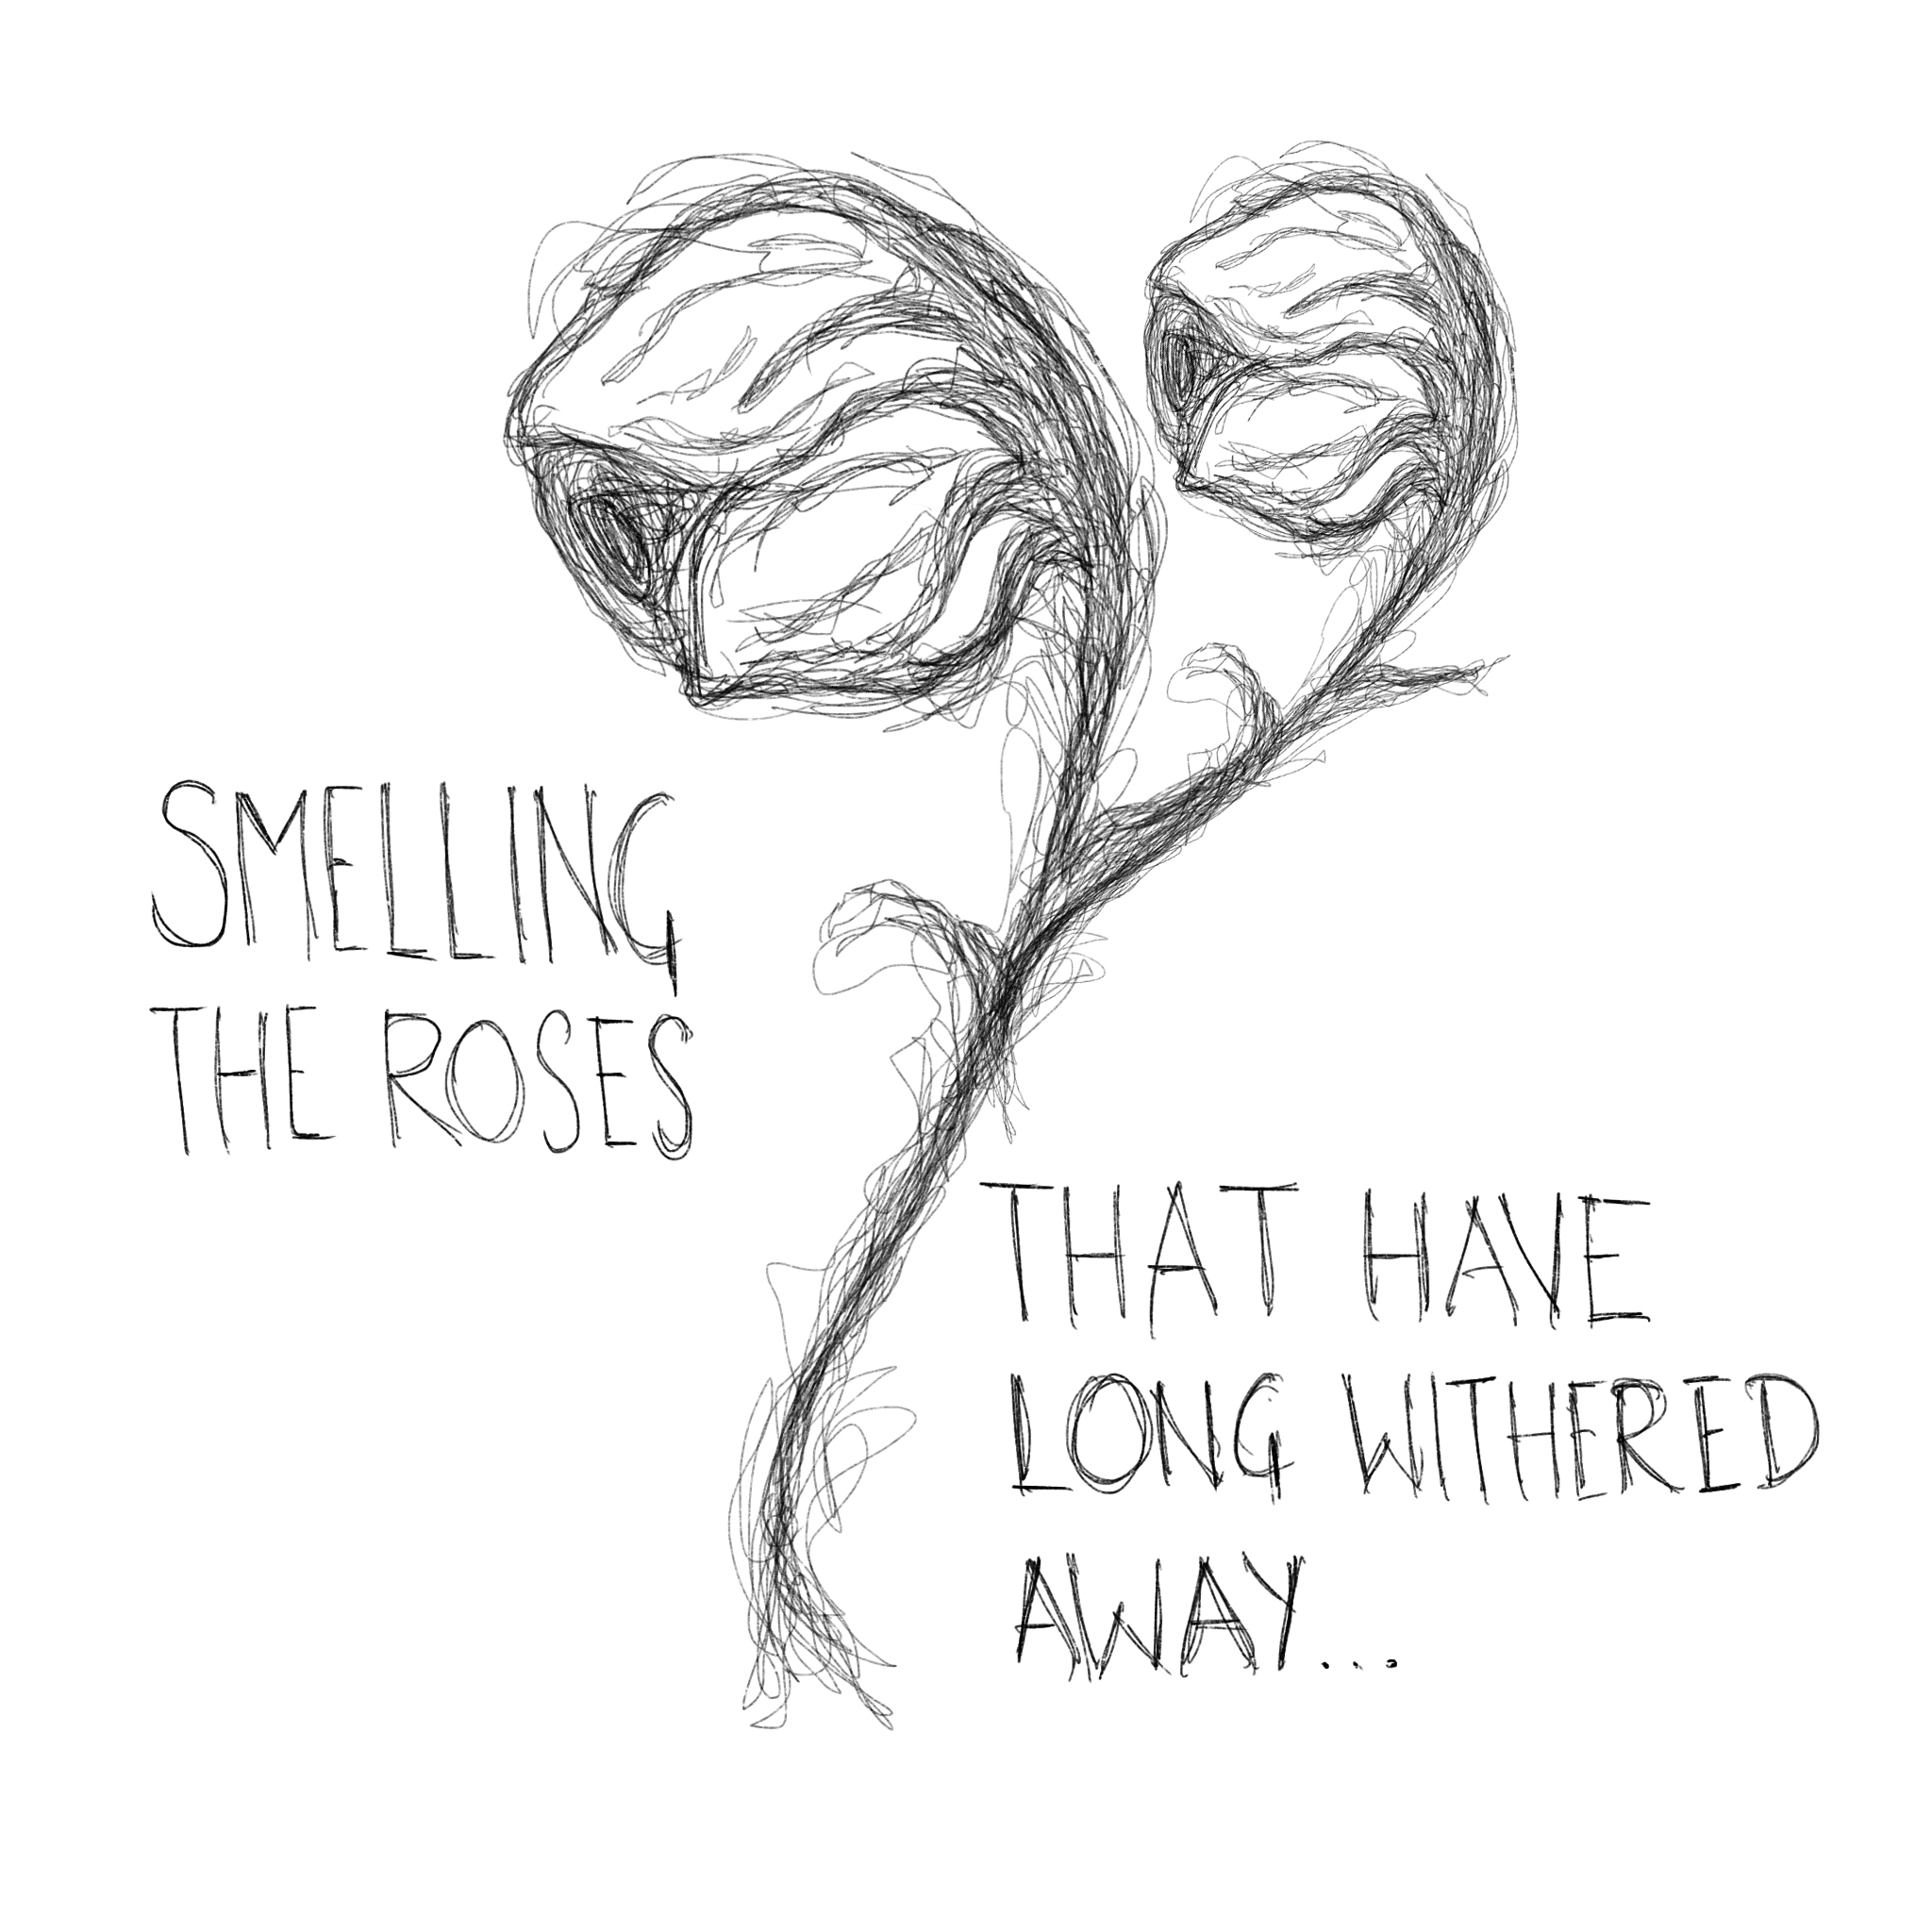 SMELLING
THE ROSES
THAT HAVE
LONG WITHERED
AWAY...